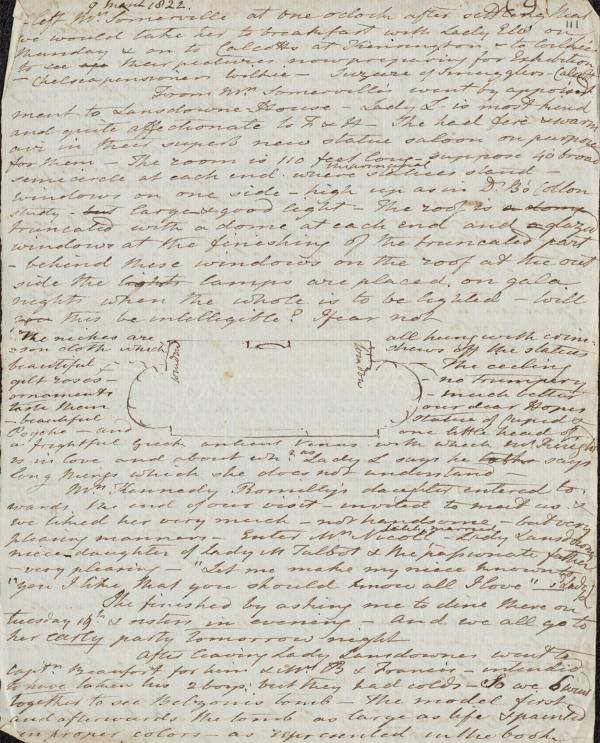 9 March 1822.
left Mrs Somerville at one oclock after settling that
we would take her to breakfast with Lady Eliz on
Thursday & on to Calcotts at Kensington & to Wilkies
to see their pictures now preparing for Exhibition
- Chelsea pensioners Wilkie - Seizure of Smugglers Calcott
From Mrs Somervilles went by appoint
ment to Lansdowne House - Lady L is most kind
and quite affectionate to F & H - She had fire & warm
air in their superb new statue saloon on purpose
for them - The room is 110 feet long - suppose 40 broad
semicircle at each end where statues stand -
windows on one side - high up as in Dr Bs Collon
study - but large & good light - The roof is
truncated with a dome at each end and
windows at the finishing of the truncated part
- behind these windows on the roof at the out
side the lights lamps are placed on gala
nights when the whole is to be lighted - will
this be intelligible? I fear not
The niches are all hung with crim
son cloth which shews off the statues
beautiful - The ceiling
gilt roses - - no trumpery
ornaments much better
taste than our dear Hopes
- beautiful statue of Cupid &
Psyche - and little head of
a frightful Greek antient Venus with which
is in love and about wh Lady L says he says
long things which she does not understand -
Mrs Kennedy Romilly's daughter entered to-
wards the end of our visit - invited to meet us &
we liked her very much - not handsome - but very
pleasing manners - Enter Mrs Nicoll - Lady Lansdowne's
niece - daughter of Lady M Talbot & the passionate father
- very pleasing - "Let me make my niece known to
you I like that you should know all I love"
She finished by asking me to dine there on
tuesday & sisters in evening - And we all go to
her early party tomorrow night
After leaving Lady Lansdownes went to
Captn Beaufort for him & Mrs B & Francis - intended
to have taken his 2 boys but they had colds - So we 6 went
together to see Belzonis tomb - The model first
and afterwards the tomb as large as life & painted
in proper colors - as represented in the book
window
window